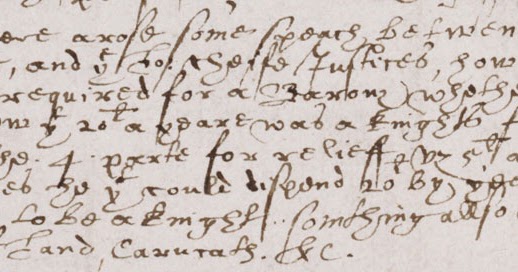 ere arose some speach betwen
, and yͤ Lo: cheiffe Justices, how
required for a Barony wheth
ow yͭ 20ˡ a yeare was a knights f
he . 4 . parte for relieffe vz 5ˡ a
es he yͭ could dispend 20ˡ by yeare
to be a knight .. somthing allso
Land, Carucath. &c.